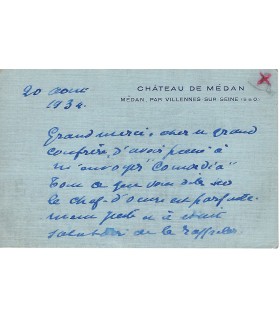 CHÂTEAU DE MÉDAN
MÉDAN, PAR VILLENNES-SUR-SEINE (S&O)
20 août
1934.
Grand merci, cher grand
confrère, d'avoir pensé à
m'envoyer "Comœdia"
Tout ce que vous dites sur
le chef-d'œuvre est parfaite-
ment juste et
de la